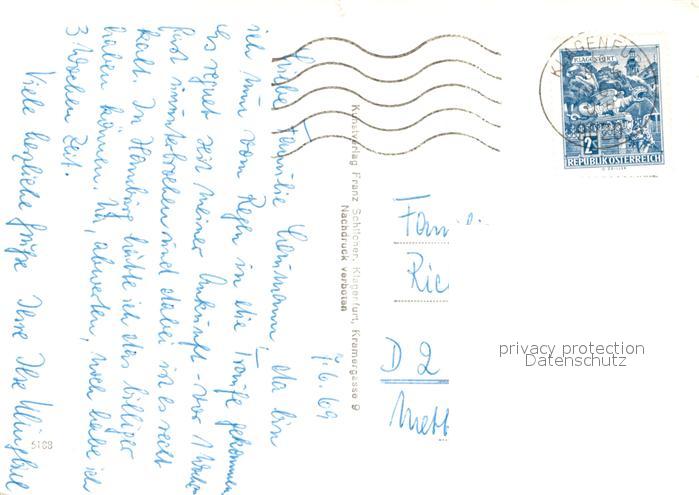 7.6.69
Liebe Familie da bin
ich nun vom Regen in die Traufe gekommen
Es regnet seit meiner Ankunft - vor 1 Woche
fast ununterbrochen und dabei ist es recht
kalt. In Hamburg hätte ich das billiger
haben können. Na, abwarten, noch habe ich
3 Wochen Zeit.
Viele herzliche Grüße Ihre Ilse
5188
Kunstverlag Franz Schilcher, Klagenfurt, Kramergasse 9
Nachdruck verboten
KLAGENFURT
2
REPUBLIK ÖSTERREICH
Fam
Ric
D 2
Mett
privacy protection
Datenschutz